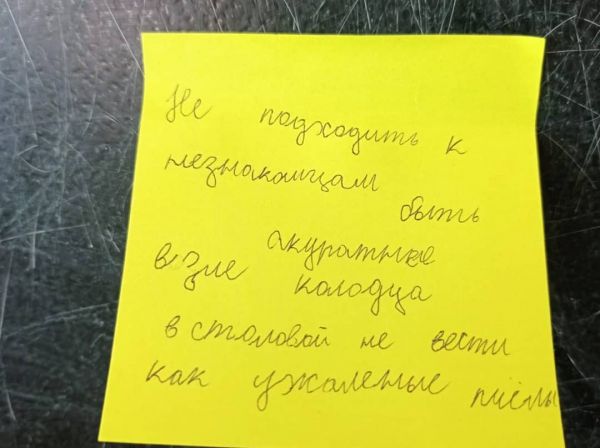 Не подходить к
незнакомцам
быть
акуратнее
взле колодца
в столовой не вести
как ужаленые пчёлы